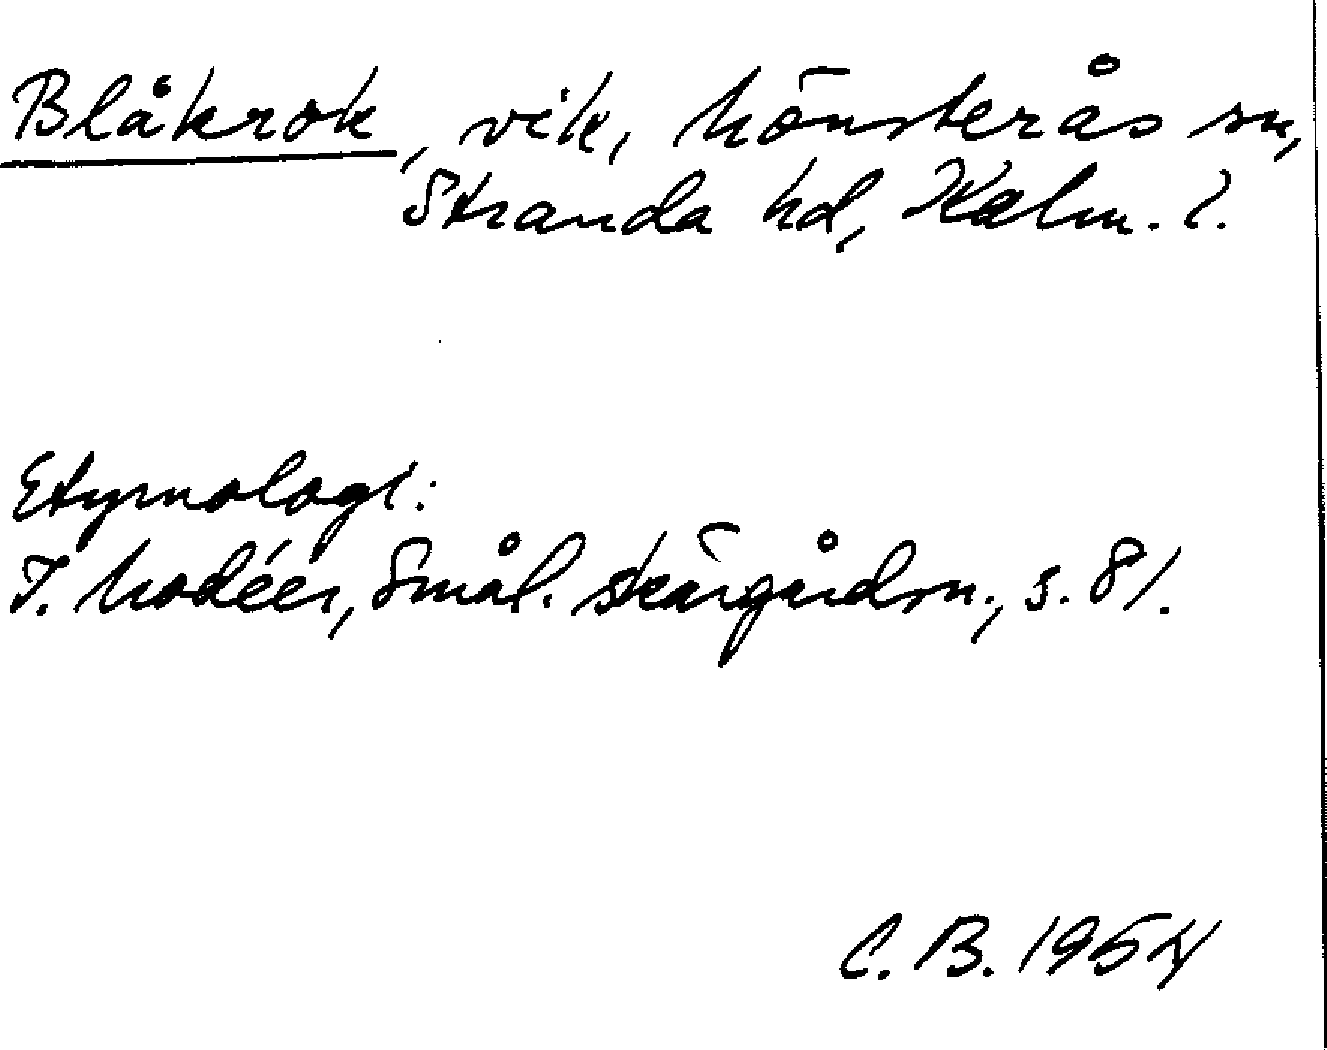 Blåkrok, vik, Mönsterås sn,
Stranda hd, Kalm. l.
Etymologi:
I. Modéer, Smål. skärgårdsn., s. 81.
C. B. 1954